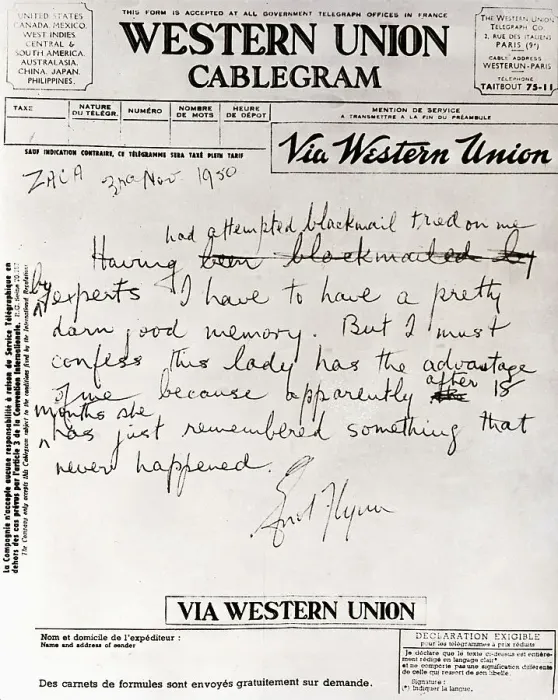 THIS FORM IS ACCEPTED AT ALL GOVERNMENT TELEGRAPH OFFICES IN FRANCE
UNITED STATES
CANADA, MEXICO,
WEST INDIES,
CENTRAL &
SOUTH AMERICA,
AUSTRALASIA,
CHINA, JAPAN,
PHILIPPINES.
WESTERN UNION
CABLEGRAM
THE WESTERN UNION
TELEGRAPH CO
2, RUE DES ITALIENS
PARIS (9e)
CABLE ADDRESS
WESTERUN-PARIS
TÉLÉPHONE
TAITBOUT 75-11
TAXE
NATURE
DU TÉLÉGR.
NUMÉRO
NOMBRE
DE MOTS
HEURE
DE DÉPOT
MENTION DE SERVICE
A TRANSMETTRE A LA FIN DU PRÉAMBULE
SAUF INDICATION CONTRAIRE, CE TÉLÉGRAMME SERA TAXÉ PLEIN TARIF
Via Western Union
ZACA 3rd Nov 1950
had attempted blackmail tried on me
Having been blackmailed by
by experts I have to have a pretty
darn good memory. But I must
confess this lady has the advantage
of me because apparently after 18
months she
has just remembered something that
never happened.
Errol Flynn
La Compagnie n'accepte aucune responsabilité à raison du Service Télégraphique en
dehors des cas prévus par l'article 3 de la Convention Internationale.
The Company only accepts this Cablegram subject to the conditions fixed by the International Regulations
VIA WESTERN UNION
Nom et domicile de l'expéditeur :
Name and address of sender
Des carnets de formules sont envoyés gratuitement sur demande.
DÉCLARATION EXIGIBLE
pour les télégrammes à prix réduits
Je déclare que le texte ci-dessus est entière-
ment rédigé en langage clair*
et ne comporte pas une signification différente
de celle qui ressort de son libellé.
Signature :
(*) Indiquer la langue.